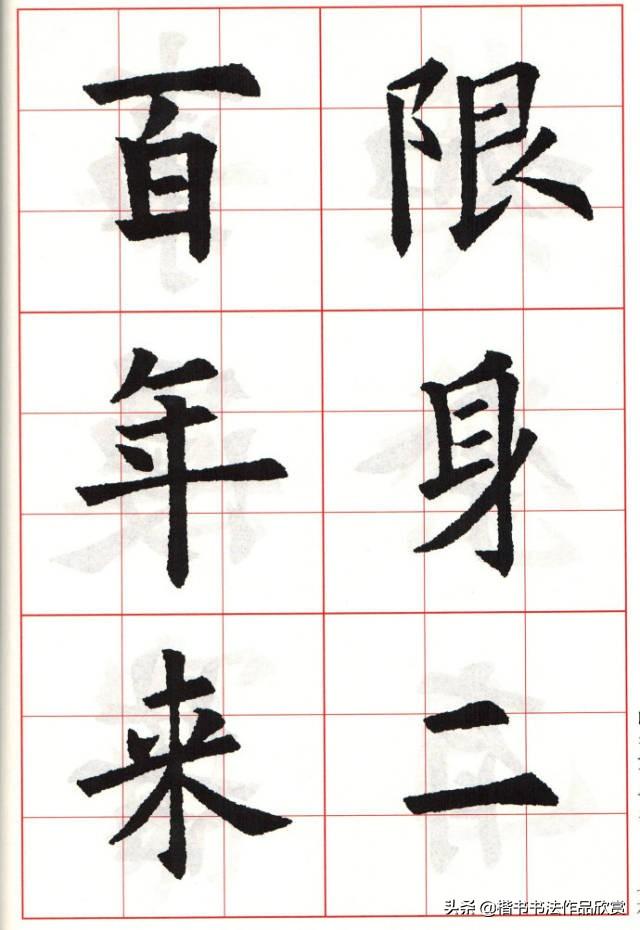 限身二
百年来
头条 @楷书书法作品欣赏